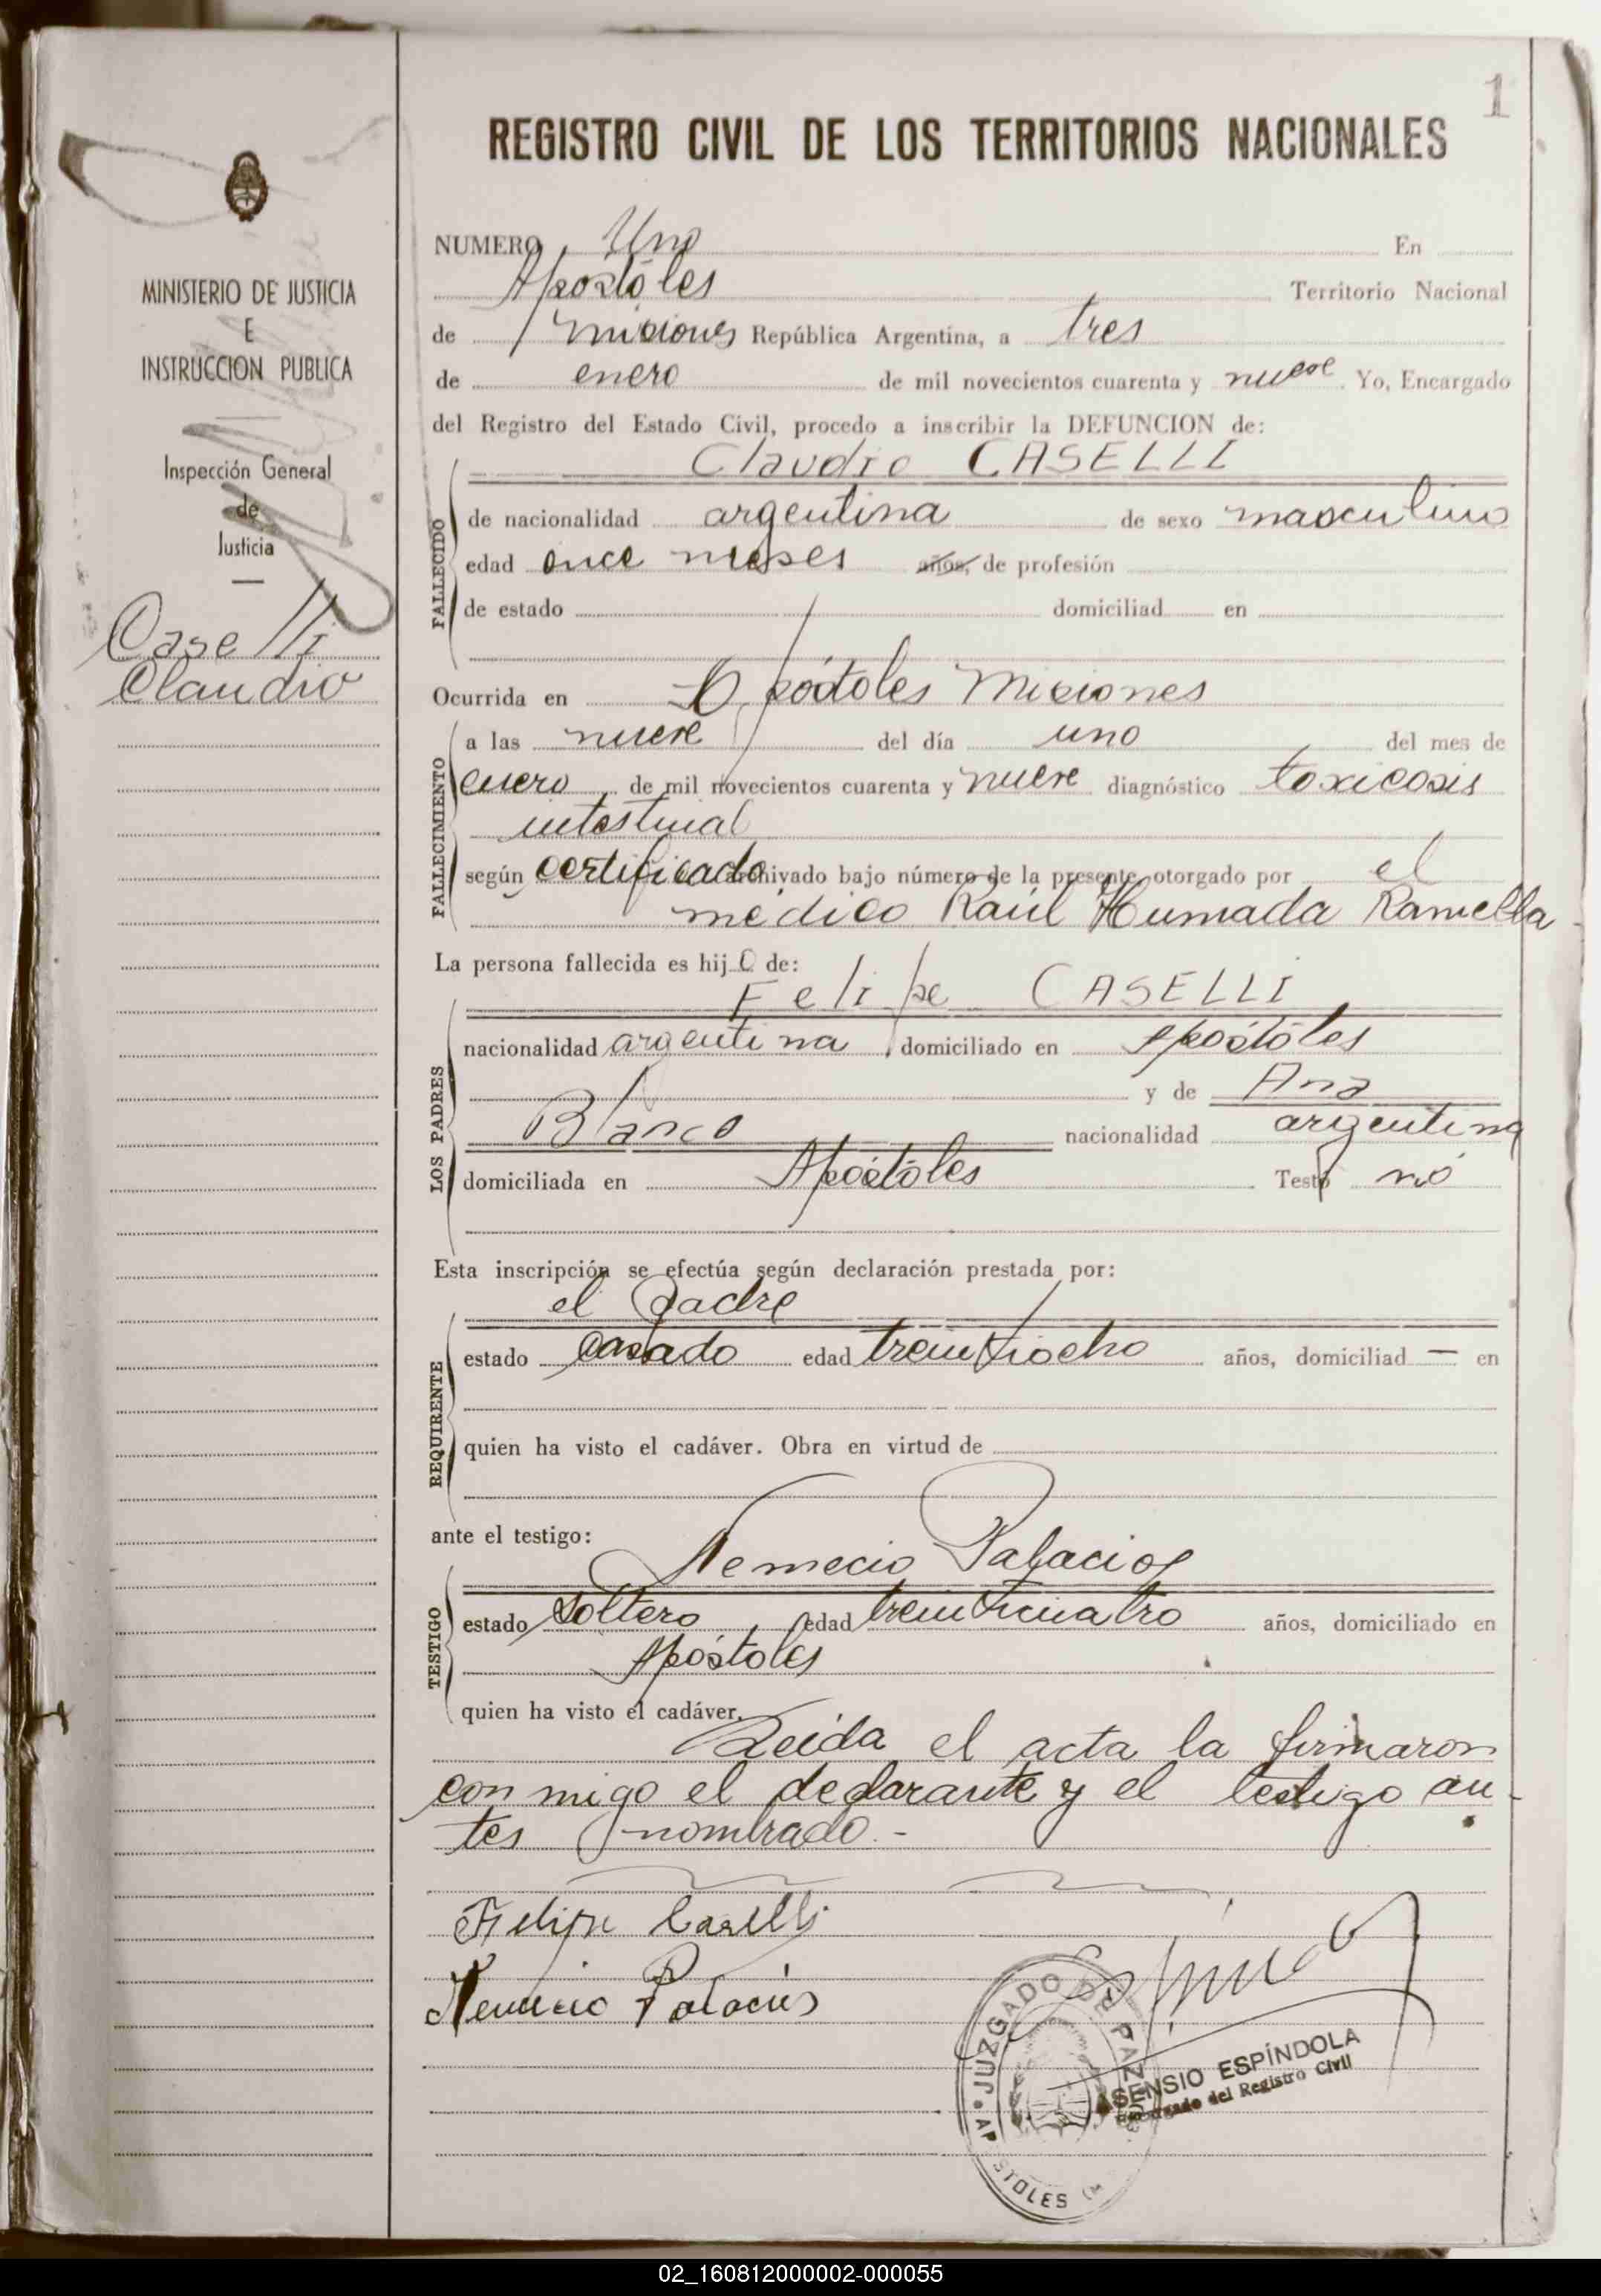 1
REGISTRO CIVIL DE LOS TERRITORIOS NACIONALES
MINISTERIO DE JUSTICIA
E
INSTRUCCION PUBLICA
Inspección General
de
Justicia
Caselli
Claudio
NUMERO Uno En
Apostóles Territorio Nacional
de Misiones República Argentina, a tres
de enero de mil novecientos cuarenta y nueve. Yo, Encargado
del Registro del Estado Civil, procedo a inscribir la DEFUNCION de:
Claudio CASELLI
FALLECIDO
de nacionalidad argentina de sexo masculino
edad once meses años, de profesión
de estado domiciliad en
Ocurrida en Apóstoles Misiones
FALLECIMIENTO
a las nueve del día uno del mes de
enero de mil novecientos cuarenta y nueve diagnóstico toxicosis
intestinal
según certificado archivado bajo número de la presente, otorgado por el
médico Raúl Humada Ramella
La persona fallecida es hijo de:
LOS PADRES
Felipe CASELLI
nacionalidad argentina, domiciliado en Apóstoles
y de Ana
Blanco nacionalidad argentina
domiciliada en Apóstoles Testó nó
Esta inscripción se efectúa según declaración prestada por:
REQUIRENTE
el Padre
estado casado edad treintiocho años, domiciliad — en
quien ha visto el cadáver. Obra en virtud de
ante el testigo:
TESTIGO
Nemecio Palacios
estado soltero, edad treinticuatro años, domiciliado en
Apóstoles
quien ha visto el cadáver.
Leída el acta la firmaron
conmigo el declarante y el testigo an-
tes nombrado.-
Felipe Caselli
Nemecio Palacios
JUZGADO DE PAZ
AP STOLES
ASENSIO ESPÍNDOLA
Encargado del Registro Civil
02_160812000002-000055